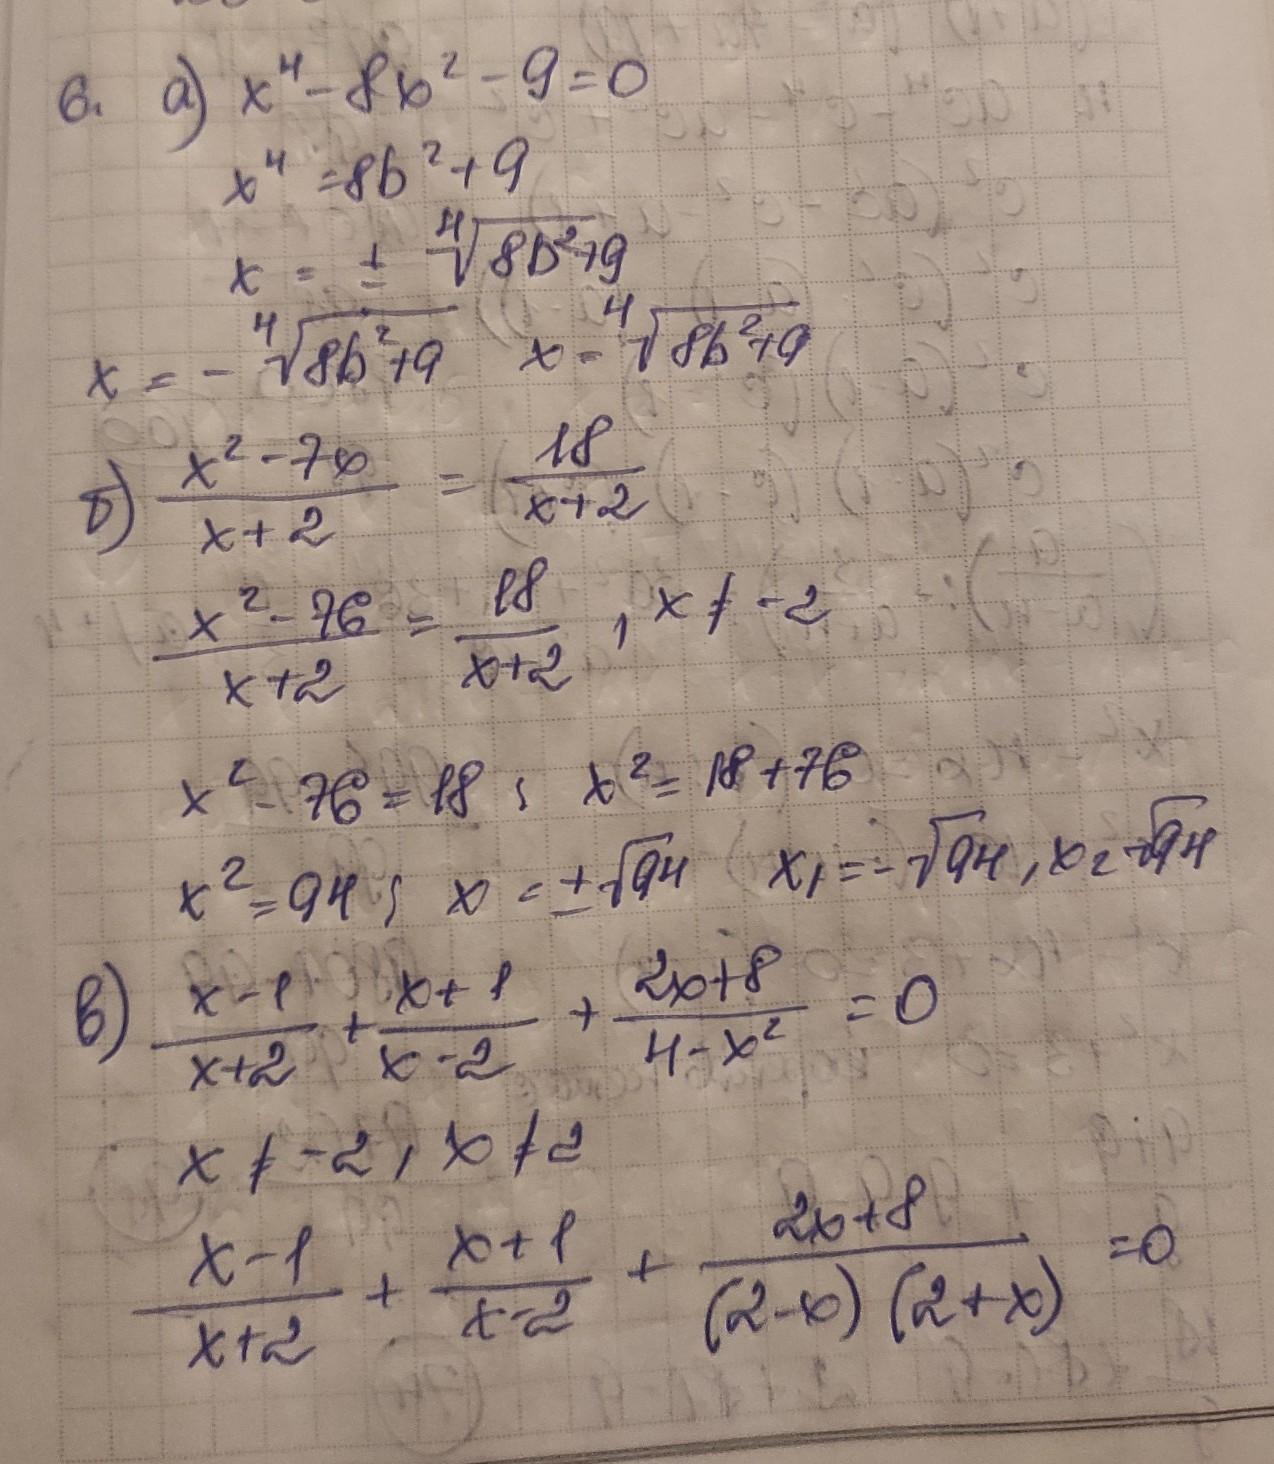 6. а) x⁴ - 8x² - 9 = 0
x⁴ = 8b² + 9
x = ± ⁴√(8b²+9)
x = - ⁴√(8b²+9) x = ⁴√(8b²+9)
б) (x² - 7x)/(x+2) = 18/(x+2)
(x² - 76)/(x+2) = 18/(x+2), x ≠ -2
x² - 76 = 18; x² = 18 + 76
x² = 94; x = ±√94 x₁ = -√94, x₂ = √94
в) (x-1)/(x+2) + (x+1)/(x-2) + (2x+8)/(4-x²) = 0
x ≠ -2, x ≠ 2
(x-1)/(x+2) + (x+1)/(x-2) + (2x+8)/((2-x)(2+x)) = 0